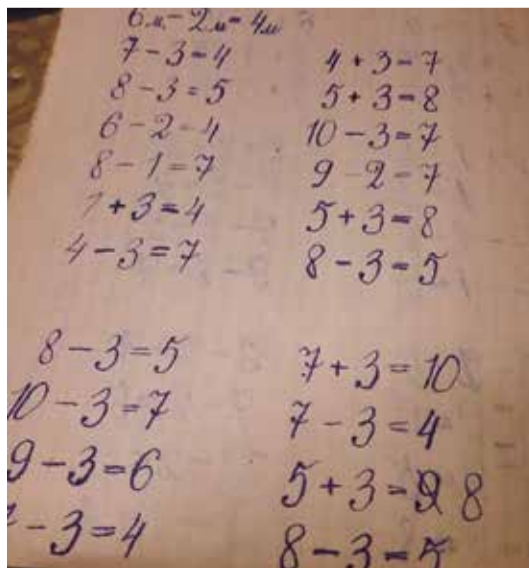 6м - 2м = 4м
7 - 3 = 4
8 - 3 = 5
6 - 2 = 4
8 - 1 = 7
1 + 3 = 4
4 - 3 = 7
4 + 3 = 7
5 + 3 = 8
10 - 3 = 7
9 - 2 = 7
5 + 3 = 8
8 - 3 = 5
8 - 3 = 5
10 - 3 = 7
9 - 3 = 6
- 3 = 4
7 + 3 = 10
7 - 3 = 4
5 + 3 = 8
8 - 3 = 5